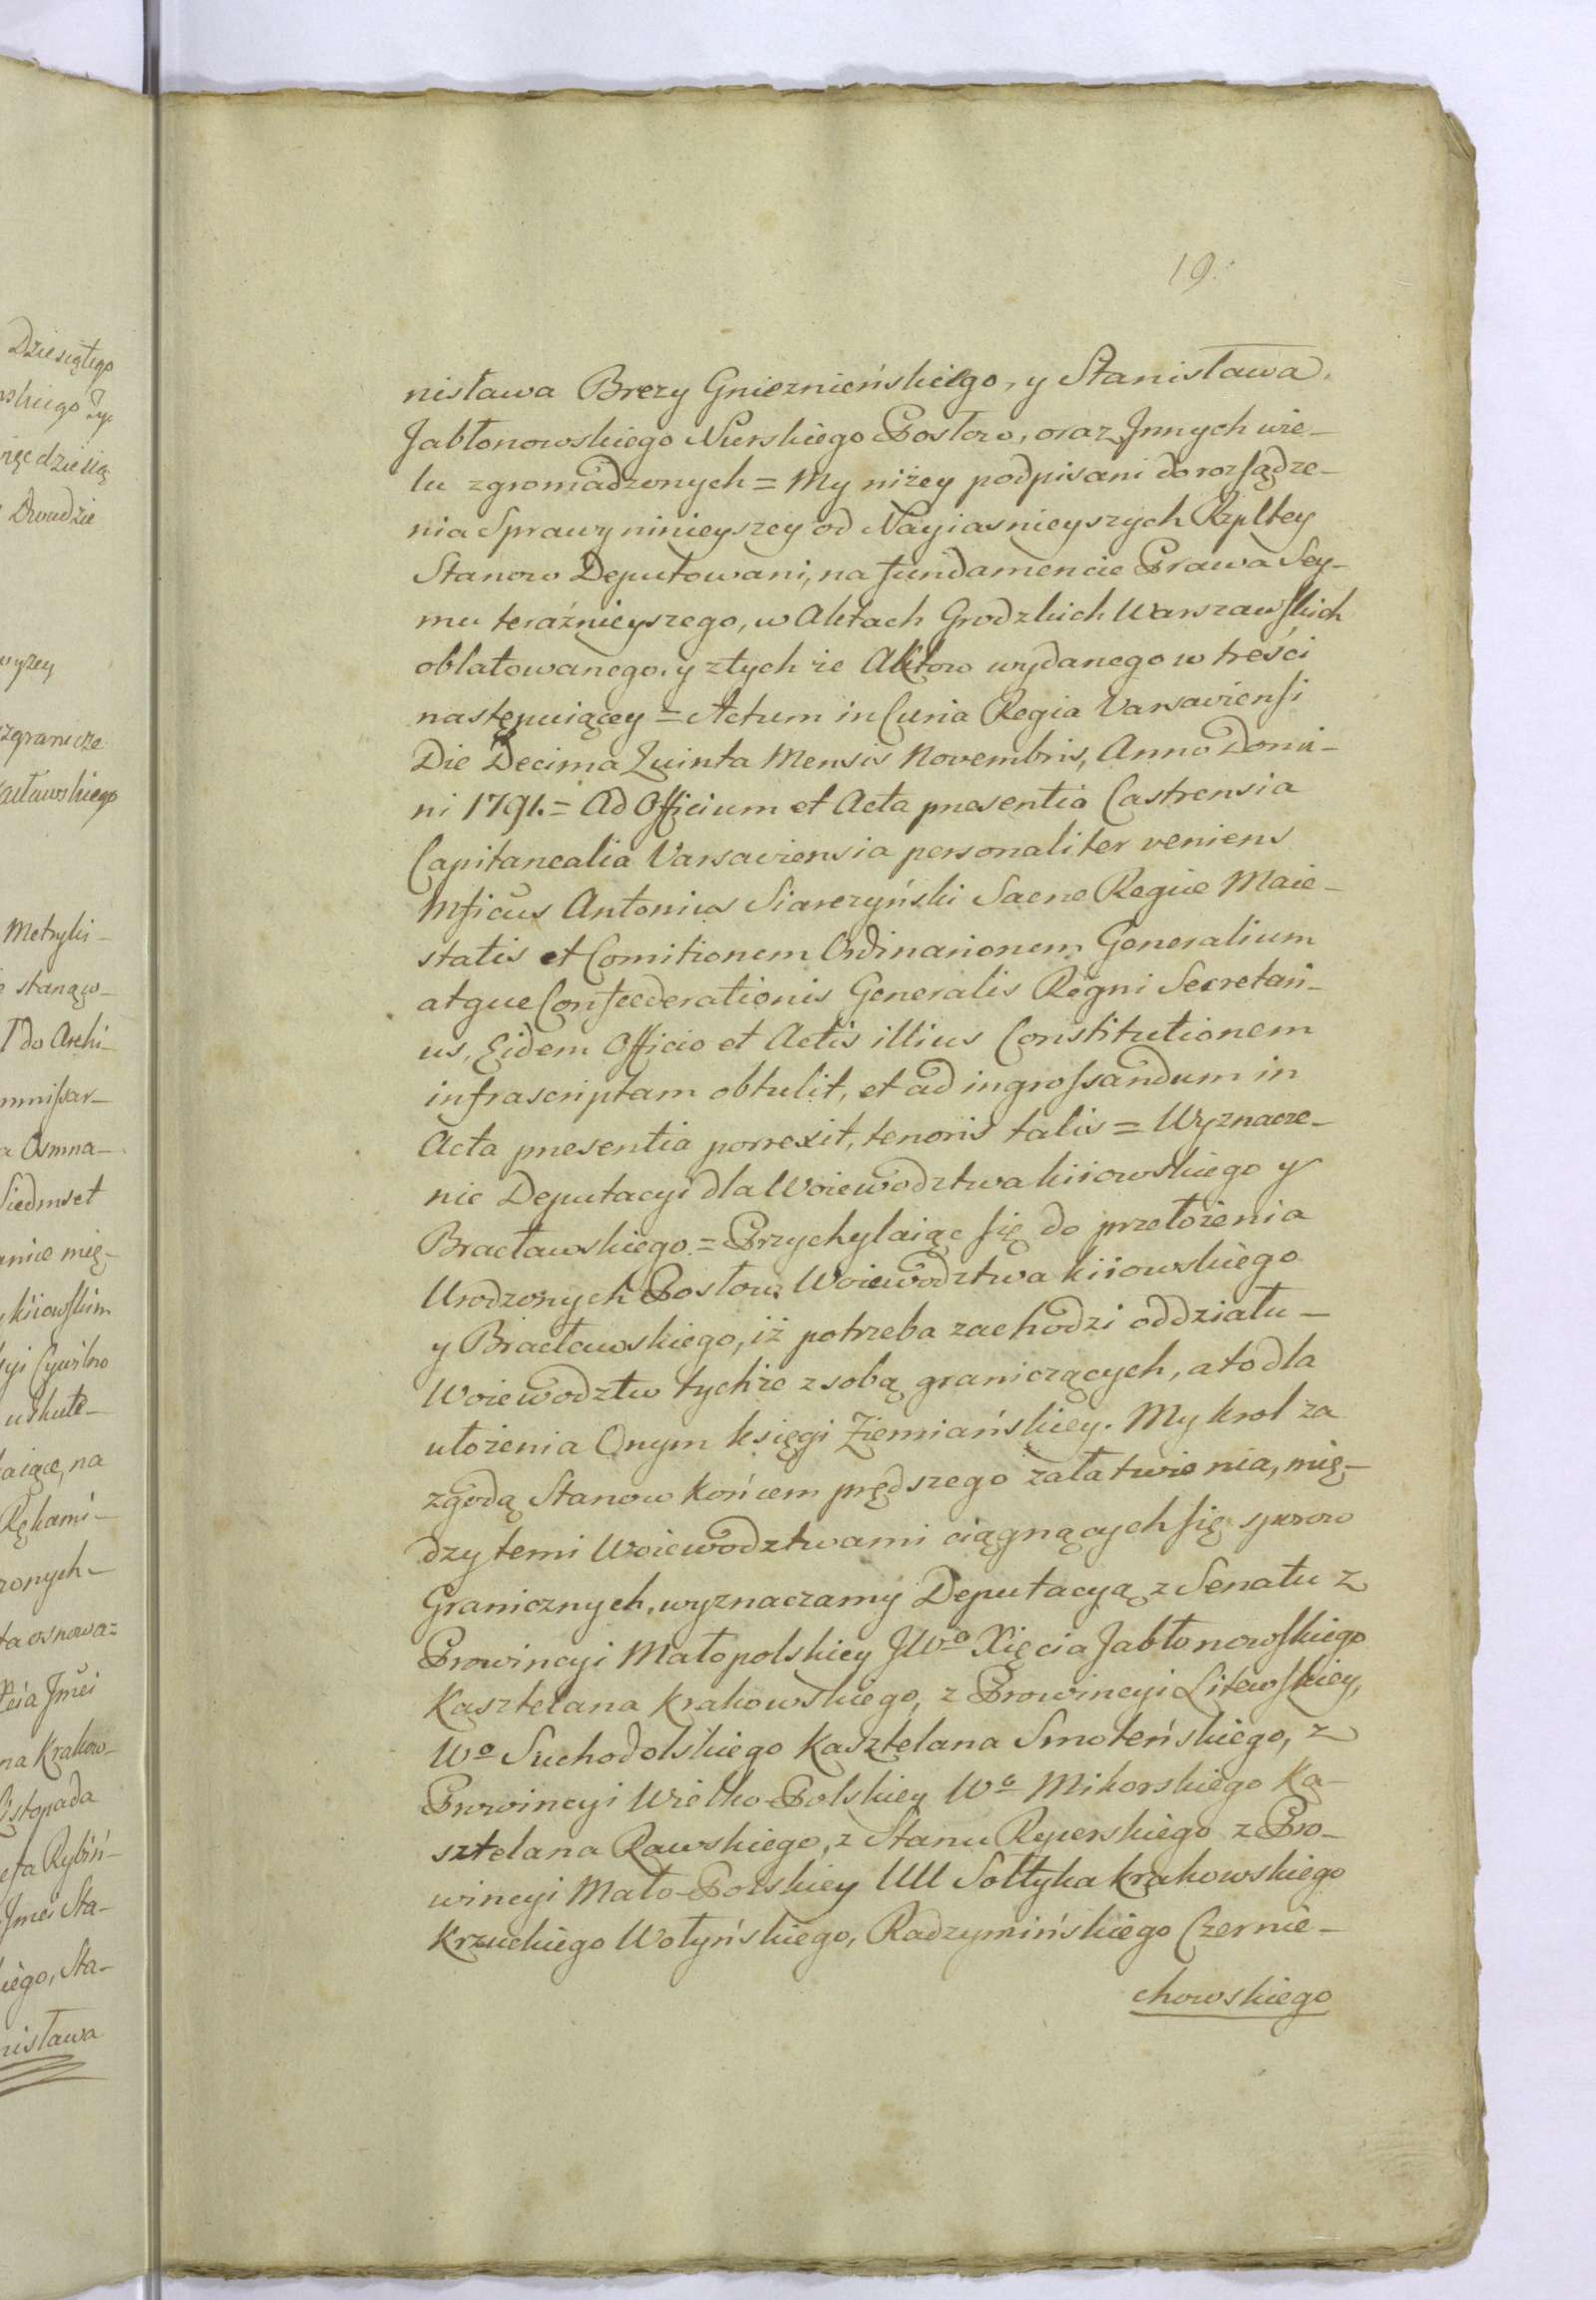 Dziesiątego
nię dziesią
Dwudzie
wyzey
zgranicze
acławskiego
Metryki-
stanąw-
do Archi-
mmissar-
a Osmna-
Siedmset
anie mię-
kiiowskim
Cywilno
uskute-
aiące, na
Rękami-
zonych-
ta osnowa=
na Krakow-
Listopada
efa Rybiń-
Jmci Sta-
iego, Sta-
nisława
19.
nisława Brezy Gnieznieńskiego, y Stanisława
Jabłonowskiego Nurskiego Posłow, oraz Jnnych wie-
lu zgromadzonych = My niżey podpisani do rozsądze-
nia Sprawy ninieyszey od Nayiasnieyszych Rzpltey
Stanow Deputowani, na fundamencie Prawa Sey-
mu teraźnieyszego, w Aktach Grodzkich Warszawskich
oblatowanego, y ztychże Aktow wydanego w treści
następuiącey = Actum in Curia Regia Varsaviensi
Die Decima Quinta Mensis Novembris, Anno Domi-
ni 1791. = Ad Officium et Acta presentia Castrensia
Capitanealia Varsaviensia personaliter veniens
Mficus Antonius Siarczyński Sacrae Regiae Maie-
statis et Comitiorum Ordinariorum Generalium
atque Confoederationis Generalis Regni Secretari-
us, Eidem Officio et Actis illius Constitutionem
infrascriptam obtulit, et ad ingrossandum in
Acta presentia porrexit, tenoris talis = Wyznacze-
nie Deputacyi dla Woiewodztwa kiiowskiego y
Bracławskiego = Przychylaiąc się do przełożenia
Urodzonych Posłow Woiewodztwa kiiowskiego
y Bracławskiego, iż potrzeba zachodzi oddziału-
Woiewodztw tychże z sobą graniczących, a to dla
ułożenia Onym księgi Ziemiańskiey. My krol za
zgodą Stanow końcem prędszego załatwienia, mię-
dzy temi Woiewodztwami ciągnących się sporow
Granicznych, wyznaczamy Deputacyą z Senatu z
Prowincyi Małopolskiey JWo Xięcia Jabłonowskiego
Kasztelana Krakowskiego, z Prowincyi Litewskiey,
Wo Suchodolskiego Kasztelana Smoleńskiego, z
Prowincyi Wielko-Polskiey Wo Mikorskiego Ka-
sztelana Rawskiego, z Stanu Rycerskiego z Pro-
wincyi Mało-Polskiey UU Sołtyka krakowskiego
Krzuckiego Wołyńskiego, Radzymińskiego Czernie-
chowskiego